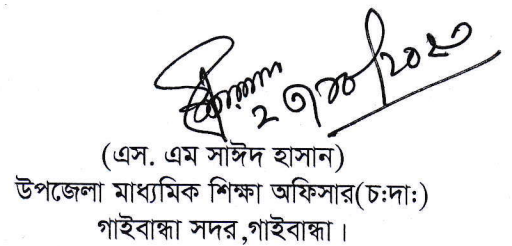 (এস. এম সাঈদ হাসান)
উপজেলা মাধ্যমিক শিক্ষা অফিসার(চ:দা:)
গাইবান্ধা সদর ,গাইবান্ধা।